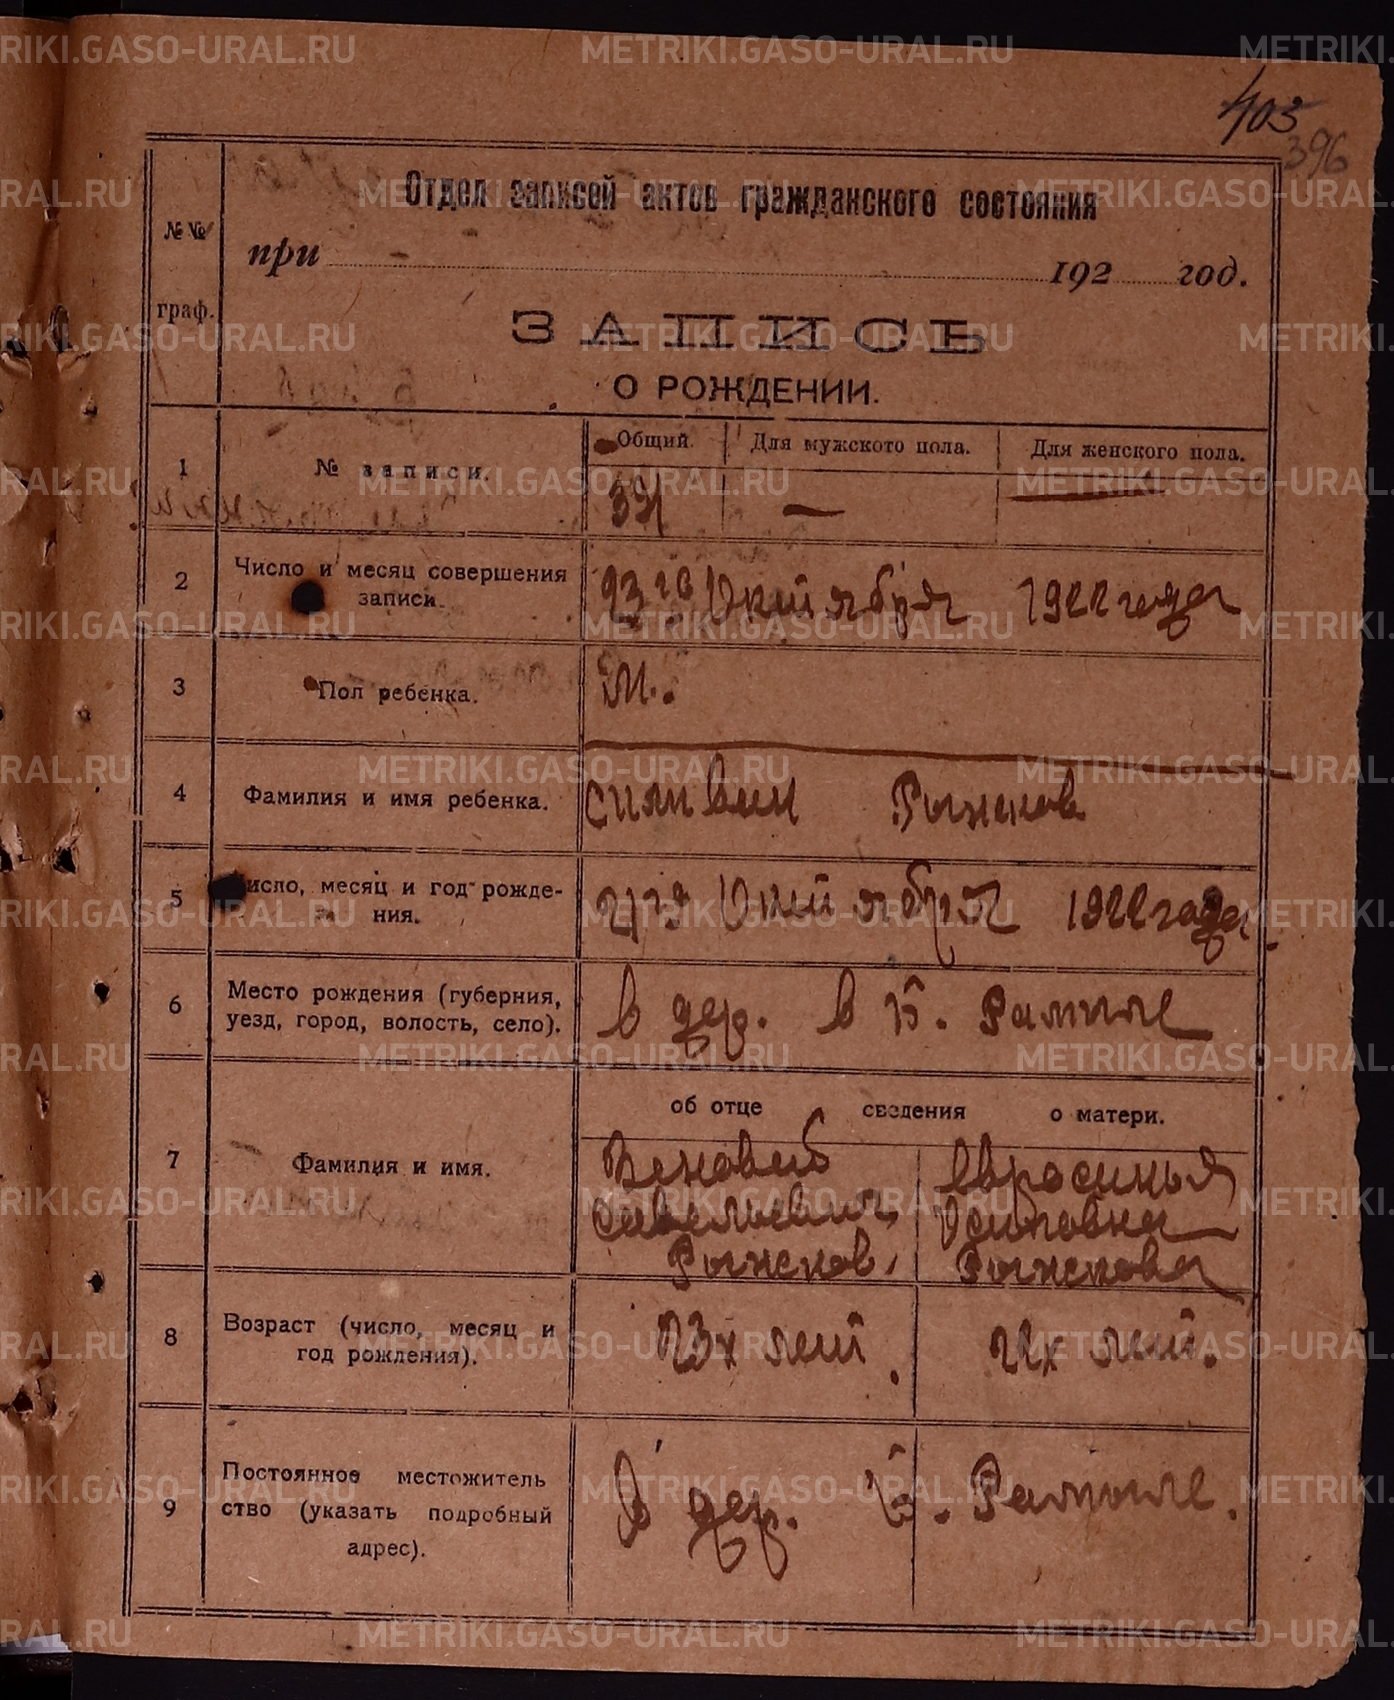 403
396
№№
граф.
Отдел записей актов гражданского состояния
при 192 год.
ЗАПИСЬ
О РОЖДЕНИИ.
1 № записи. Общий. Для мужского пола. Для женского пола.
391 —
2 Число и месяц совершения записи. 23го Октября 1922 года
3 Пол ребенка. М.
4 Фамилия и имя ребенка. Силивен Рыжков
5 Число, месяц и год рожде-
ния. 21го Октября 1922 года.
6 Место рождения (губерния,
уезд, город, волость, село). в дер. в Б. Рамыле
об отце сведения о матери.
7 Фамилия и имя. Зеновий Евросинья
Савельевич Осиповна
Рыжков. Рыжкова
8 Возраст (число, месяц и
год рождения). 23х лет. 22х лет.
9 Постоянное местожитель
ство (указать подробный
адрес). В дер. Б. Рамыле.
METRIKI.GASO-URAL.RU